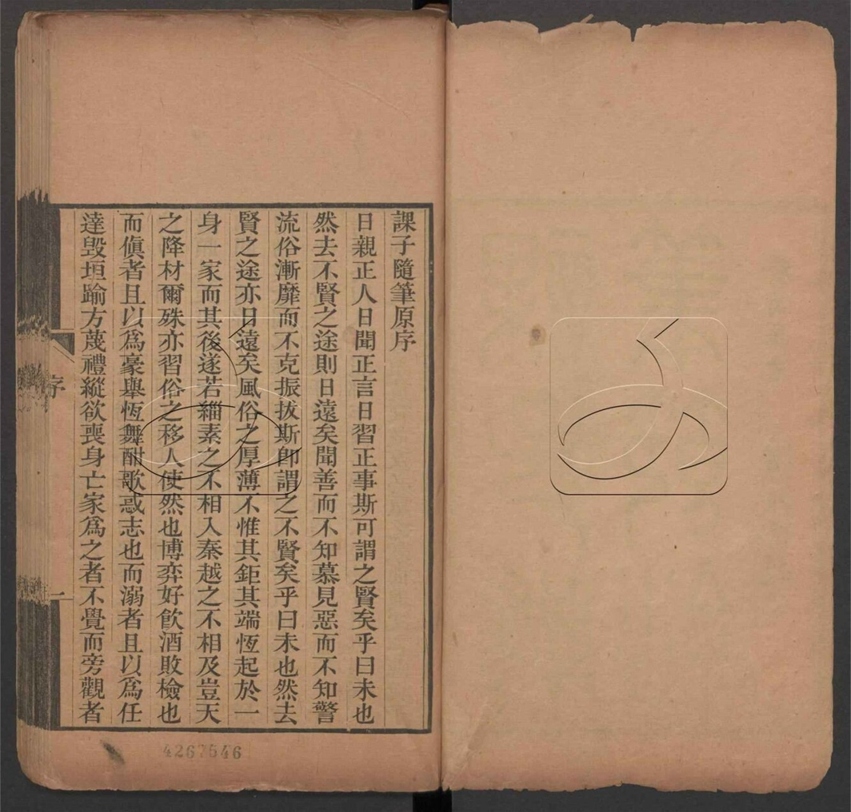 課子隨筆原序
日親正人日聞正言日習正事斯可謂之賢矣乎曰未也
然去不賢之途則日遠矣聞善而不知慕見惡而不知警
流俗漸靡而不克振拔斯卽謂之不賢矣乎曰未也然去
賢之途亦日遠矣風俗之厚薄不惟其鉅其端恆起於一
身一家而其後遂若緇素之不相入秦越之不相及豈天
之降材爾殊亦習俗之移人使然也博弈好飮酒敗檢也
而傎者且以爲豪舉恆舞酣歌惑志也而溺者且以爲任
達毀垣踰方蔑禮縱欲喪身亡家爲之者不覺而旁觀者
序
一
4267546